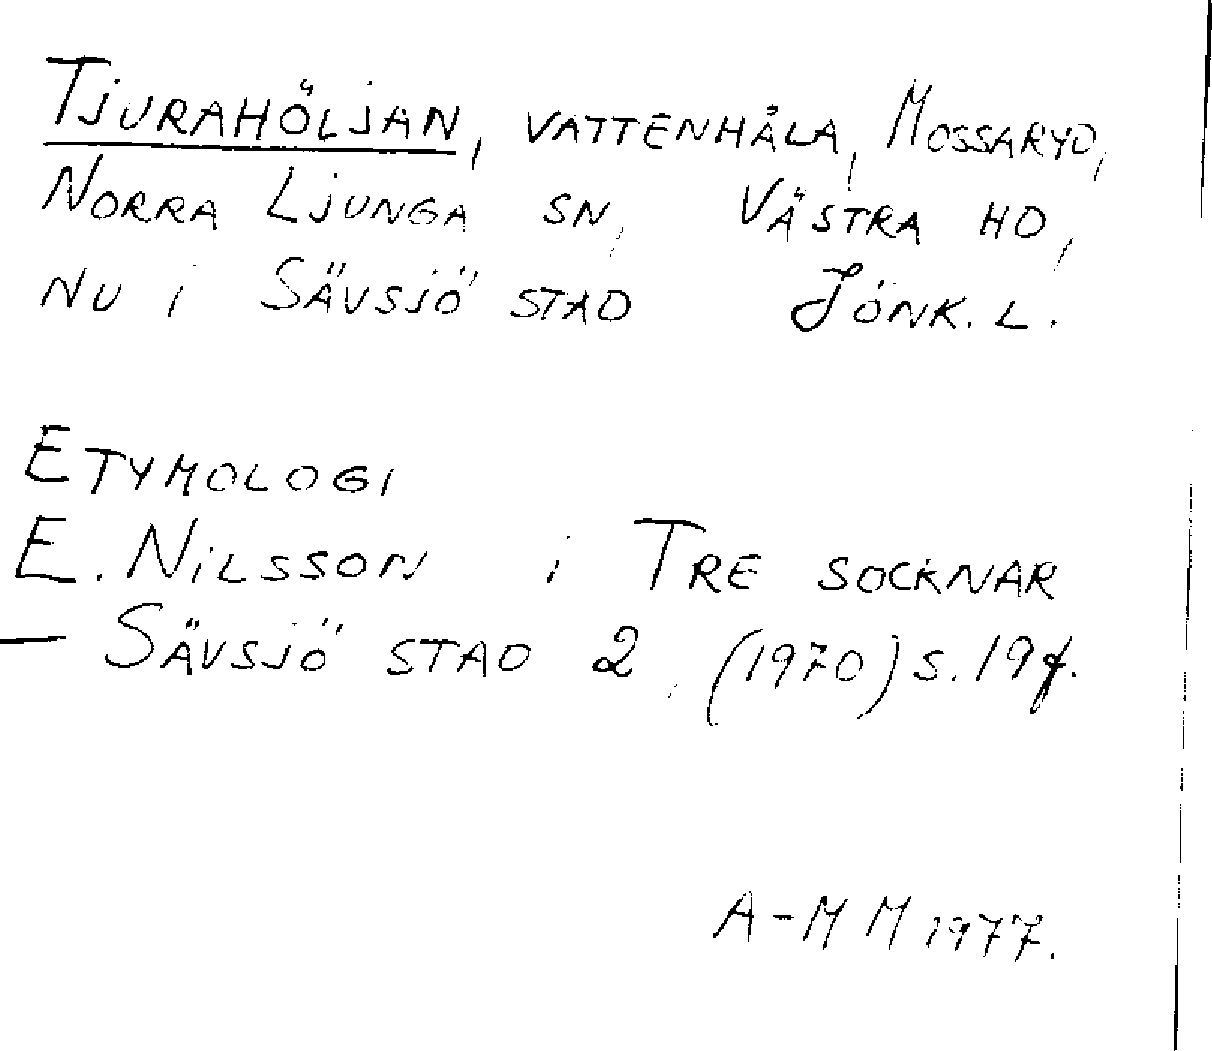 TJURAHÖLJAN, VATTENHÅLA, MOSSARYD,
NORRA LJUNGA SN, VÄSTRA HD,
NU I SÄVSJÖ STAD JÖNK. L.
ETYMOLOGI
E. NILSSON i TRE SOCKNAR
– SÄVSJÖ STAD 2, (1970) S. 19f.
A-M M 1977.